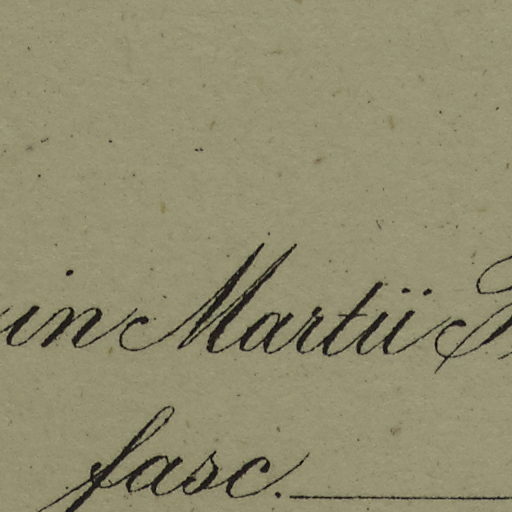 in Martii
fasc.